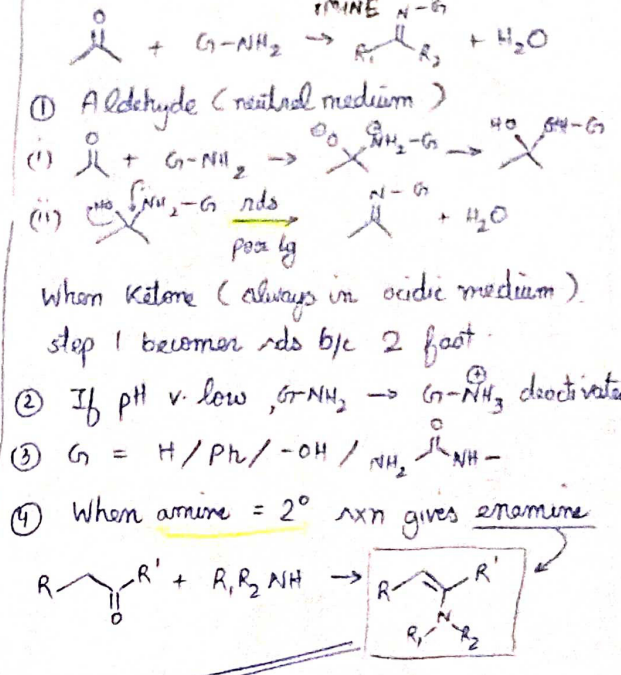 IMINE N-G
O + G-NH2 → R1 R2 + H2O
① Aldehyde (neutral medium)
(i) O + G-NH2 → O⊖ ⊕NH2-G → HO NH-G
(ii) HO NH2-G rds → N-G + H2O
poor lg
When Ketone (always in acidic medium).
step 1 becomes rds b/c 2 fast.
② If pH v. low, G-NH2 → G-NH3 ⊕ deactivate
③ G = H / Ph / -OH / NH2 O NH-
④ When amine = 2° rxn gives enamine
R R' O + R1R2 NH → R R' N R1 R2